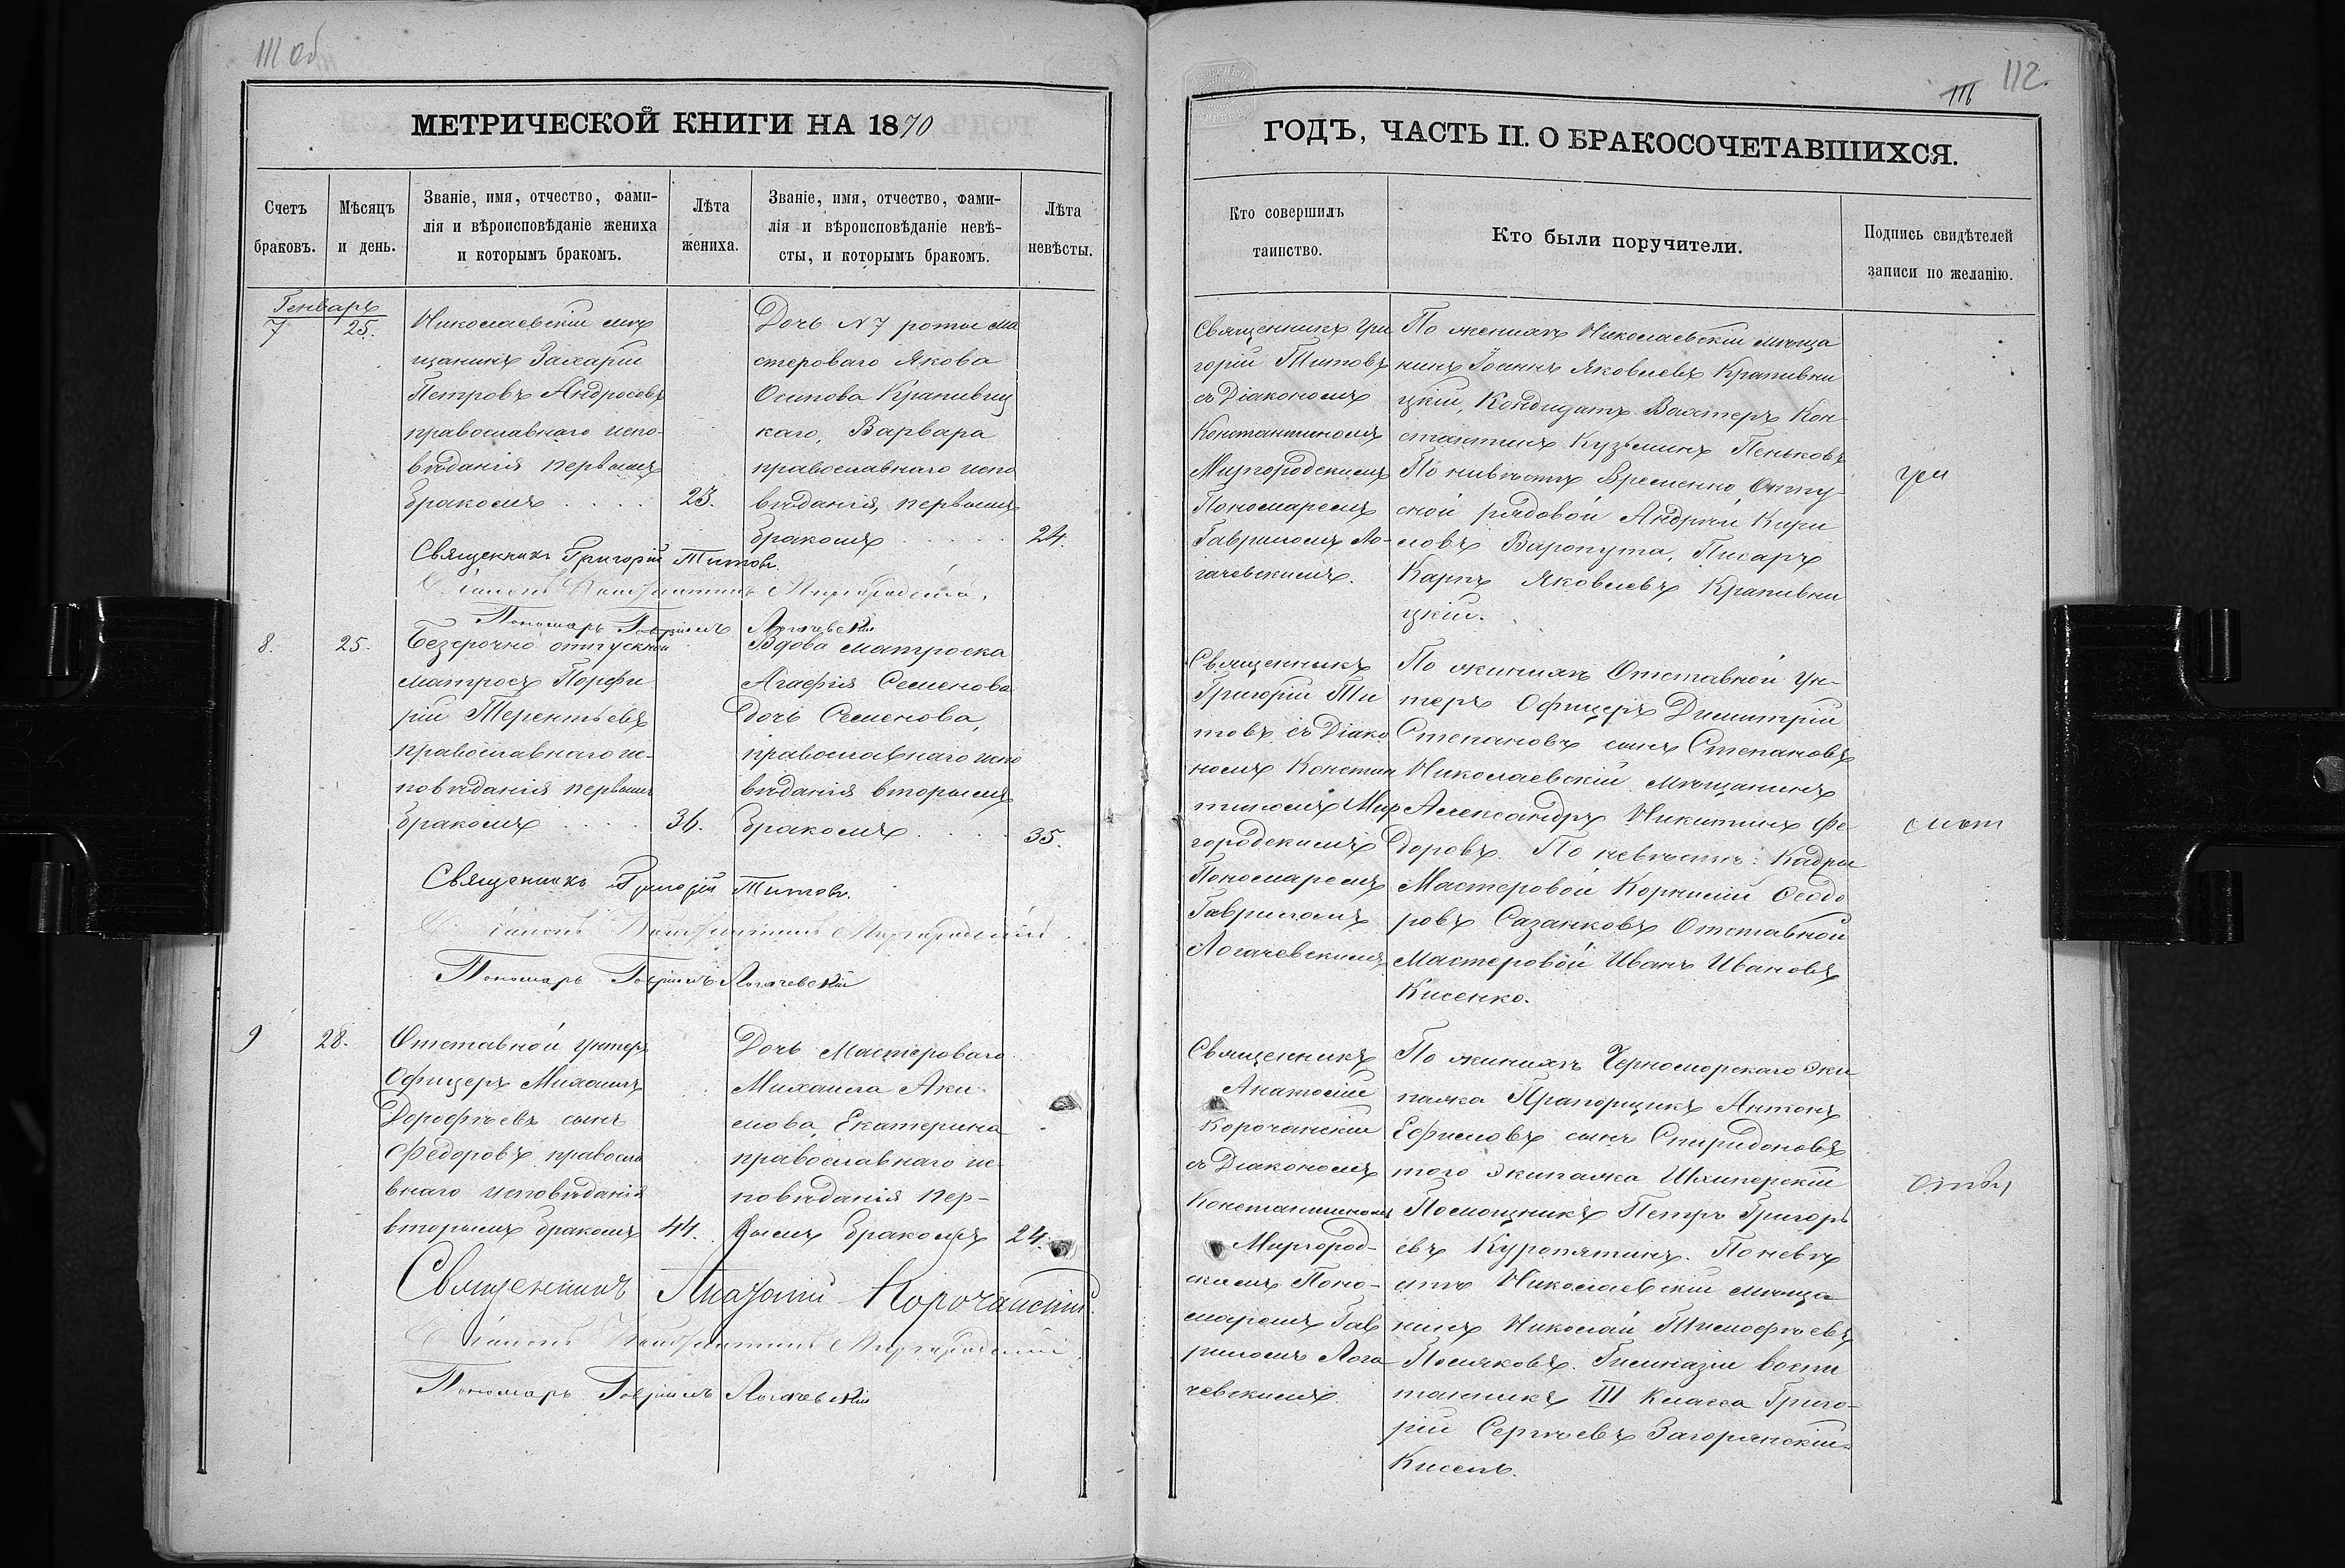 111 об
МЕТРИЧЕСКОЙ КНИГИ НА 1870
Счетъ браковъ.
Мѣсяцъ и день.
Званіе, имя, отчество, фами-
лія и вѣроисповѣданіе жениха
и которымъ бракомъ.
Лѣта жениха.
Званіе, имя, отчество, фами-
лія и вѣроисповѣданіе невѣ-
сты, и которымъ бракомъ.
Лѣта невѣсты.
Генварь
7
25.
Николаевскій мѣ
щанинъ Захарій
Петровъ Андросовъ
православнаго испо-
вѣданія первымъ
бракомъ
23.
Дочь N 7 роты ма
стероваго Якова
Осипова Крапивиц
каго, Варвара
православнаго испо
вѣданія, первымъ
бракомъ
24.
Священникъ Григорій Титовъ.
Діаконъ Константинъ Миргородскій.
Пономарь Гавріилъ Логачевскій
8.
25.
Безсрочно отпускной
матросъ Порфи
рій Терентьевъ
православнаго ис-
повѣданія первымъ
бракомъ
36.
Вдова матроска
Агафія Семенова
дочь Семенова,
православнаго испо
вѣданія вторымъ
бракомъ
35.
Священникъ Григорій Титовъ.
Діаконъ Константинъ Миргородскій.
Пономарь Гавріилъ Логачевскій
9
28.
Отставной унтеръ
Офицеръ Михаилъ
Дорофѣевъ сынъ
Федоровъ правосла
внаго исповѣданія
вторымъ бракомъ
44.
Дочь Мастероваго
Михаила Аки
мова, Екатерина
православнаго ис-
повѣданія пер-
вымъ бракомъ
24.
Священникъ Анатолій Корочанскій.
Діаконъ Константинъ Миргородскій.
Пономарь Гавріилъ Логачевскій
112.
111
ГОДЪ, ЧАСТЬ II. О БРАКОСОЧЕТАВШИХСЯ.
Кто совершилъ
таинство.
Кто были поручители.
Подпись свидѣтелей
записи по желанію.
Священникъ Гри
горій Титовъ
съ Діакономъ
Константиномъ
Миргородскимъ
Пономаремъ
Гавриломъ Ло-
гачевскимъ.
По женихѣ Николаевскій мѣща
нинъ Іоаннъ Яковлевъ Крапивни
цкій, Кондидатъ Вахтеръ Кон-
стантинъ Кузьминъ Пеньковъ
По нивѣстѣ Временно Отпу-
сной рядовой Андрей Кири
ловъ Варопута, Писарь
Карпъ Яковлевъ Крапивни
цкій.
Священникъ
Григорій Ти
товъ съ Діако
номъ Констан
тиномъ Мир
городскимъ
Пономаремъ
Гавриломъ
Логачевскимъ
По жинихѣ Отставной Ун-
теръ Офицеръ Димитрій
Степановъ сынъ Степановъ
Николаевскій мѣщанинъ
Александръ Никитинъ Фе-
доровъ. По невѣстѣ: Кадри
Мастеровой Корнилій Феодо
ровъ Сазанковъ Отставной
Мастеровой Иванъ Ивановъ
Кисенко.
Священникъ
Анатолій
Корочанскій
съ Діакономъ
Константиномъ
Миргород-
скимъ Поно-
маремъ Гав
риломъ Лога
чевскимъ.
По жинихѣ Черноморскаго Эки
пажа Прапорщикъ Антонъ
Ефимовъ сынъ Спиридоновъ
того экипажа Шхиперскій
Помощникъ Петръ Григорь
евъ Куропятинъ. По невѣ
стѣ Николаевскій мѣща
нинъ Николай Тимофѣевъ
Поляковъ. Гимназіи воспи
танникъ III Класса Григо-
рій Сергѣевъ Загорянскій-
Кисель.